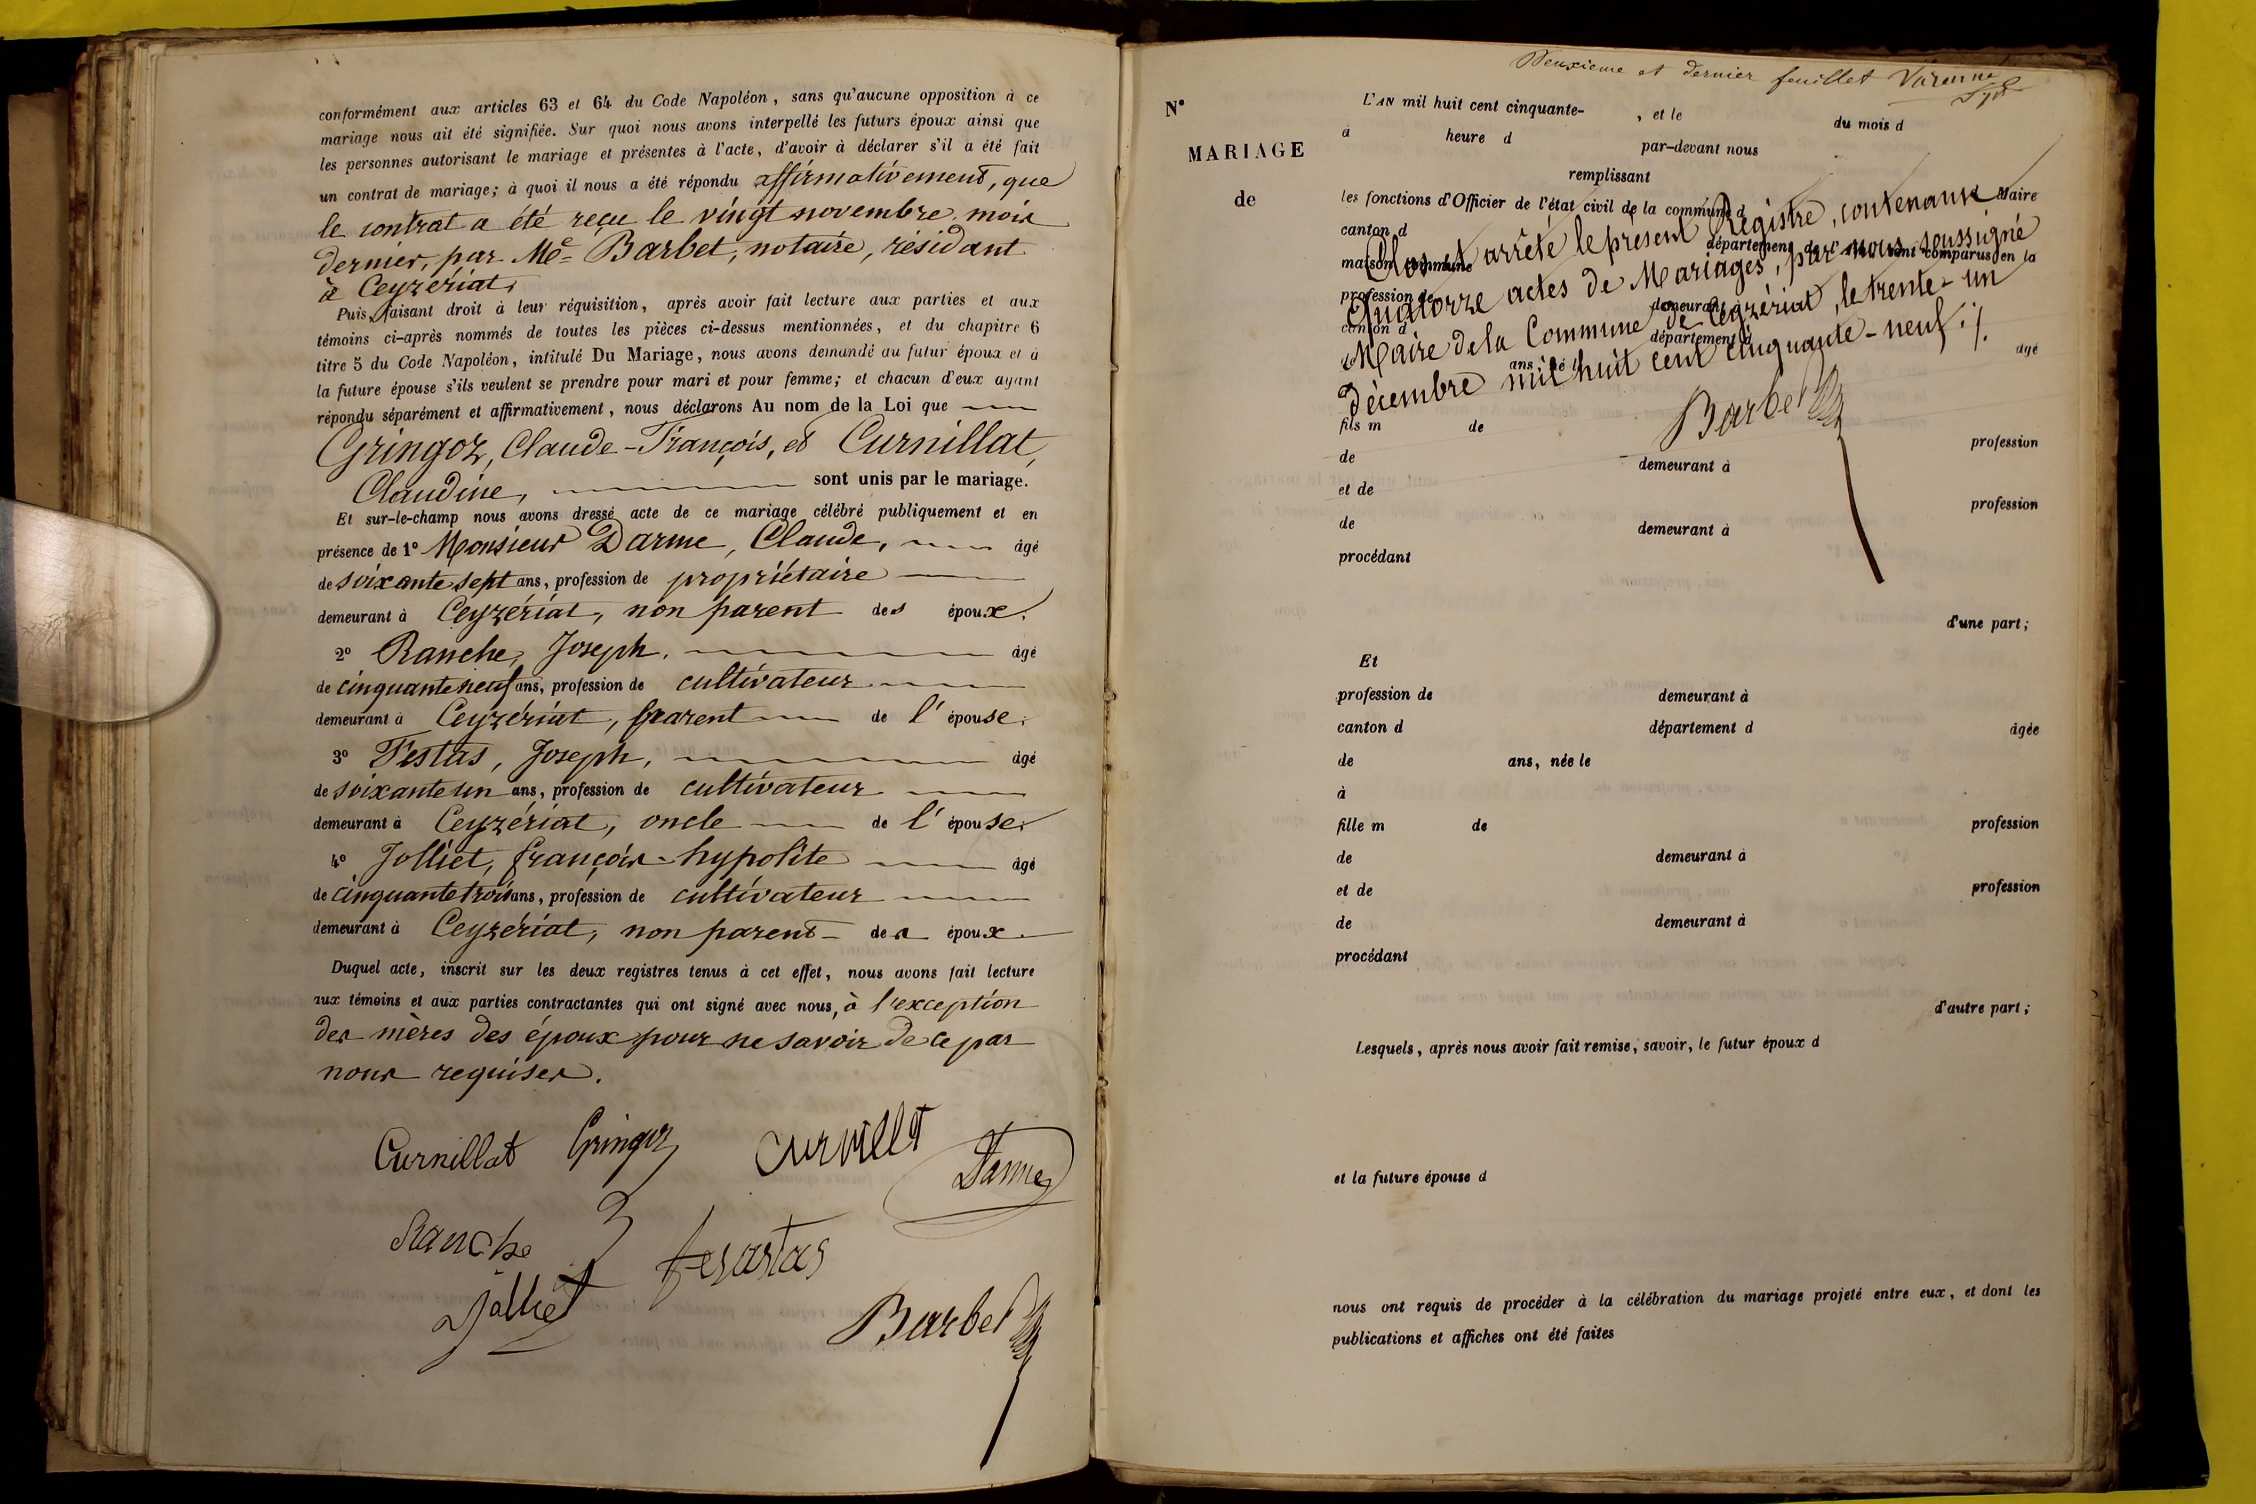 conformément aux articles 63 et 64 du Code Napoléon, sans qu'aucune opposition à ce
mariage nous ait été signifiée. Sur quoi nous avons interpellé les futurs époux ainsi que
les personnes autorisant le mariage et présentes à l'acte, d'avoir à déclarer s'il a été fait
un contrat de mariage; à quoi il nous a été répondu affirmativement, que
le contrat a été reçu le vingt novembre mois
dernier, par Me Barbet, notaire, résidant
à Ceyzériat.
Puis, faisant droit à leur réquisition, après avoir fait lecture aux parties et aux
témoins ci-après nommés de toutes les pièces ci-dessus mentionnées, et du chapitre 6
titre 5 du Code Napoléon, intitulé Du Mariage, nous avons demandé au futur époux et à
la future épouse s'ils veulent se prendre pour mari et pour femme; et chacun d'eux ayant
répondu séparément et affirmativement, nous déclarons Au nom de la Loi que
Gringoz, Claude-François, et Curnillat,
Claudine, sont unis par le mariage.
Et sur-le-champ nous avons dressé acte de ce mariage célébré publiquement et en
présence de 1° Monsieur Darme, Claude, âgé
de soixante sept ans, profession de propriétaire
demeurant à Ceyzériat, non parent des époux.
2° Ranche, Joseph, âgé
de cinquante neuf ans, profession de cultivateur
demeurant à Ceyzériat, parent de l'épouse.
3° Festas, Joseph, âgé
de soixante un ans, profession de cultivateur
demeurant à Ceyzériat, oncle de l'épouse.
4° Jolliet, françois-hypolite âgé
de cinquante trois ans, profession de cultivateur
demeurant à Ceyzériat, non parent des époux.
Duquel acte, inscrit sur les deux registres tenus à cet effet, nous avons fait lecture
aux témoins et aux parties contractantes qui ont signé avec nous, à l'exception
des mères des époux pour ne savoir de ce par
nous requises.
Curnillat Gringoz Curnillat Darme
Ranche festas
Jolliet
Barbet
Deuxième et dernier feuillet Varenne
N° L'AN mil huit cent cinquante- , et le du mois d
à heure d par-devant nous
MARIAGE
remplissant
de les fonctions d'Officier de l'état civil de la commune d Maire
canton d département de sont comparus en la
maison commune
Clos et arrêté le présent Registre, contenant
Quatorze actes de Mariages, par nous soussigné
Maire de la Commune de Ceyzériat, le trente-un
décembre mil huit cent cinquante-neuf ./.
Barbet
profession de demeurant à
canton d département d âgé
ans, né
fils m de profession
de demeurant à
et de profession
de demeurant à
procédant
d'une part;
Et
profession de demeurant à
canton d département d âgée
de ans, née le
à
fille m de profession
de demeurant à
et de profession
de demeurant à
procédant
d'autre part;
Lesquels, après nous avoir fait remise, savoir, le futur époux d
et la future épouse d
nous ont requis de procéder à la célébration du mariage projeté entre eux, et dont les
publications et affiches ont été faites